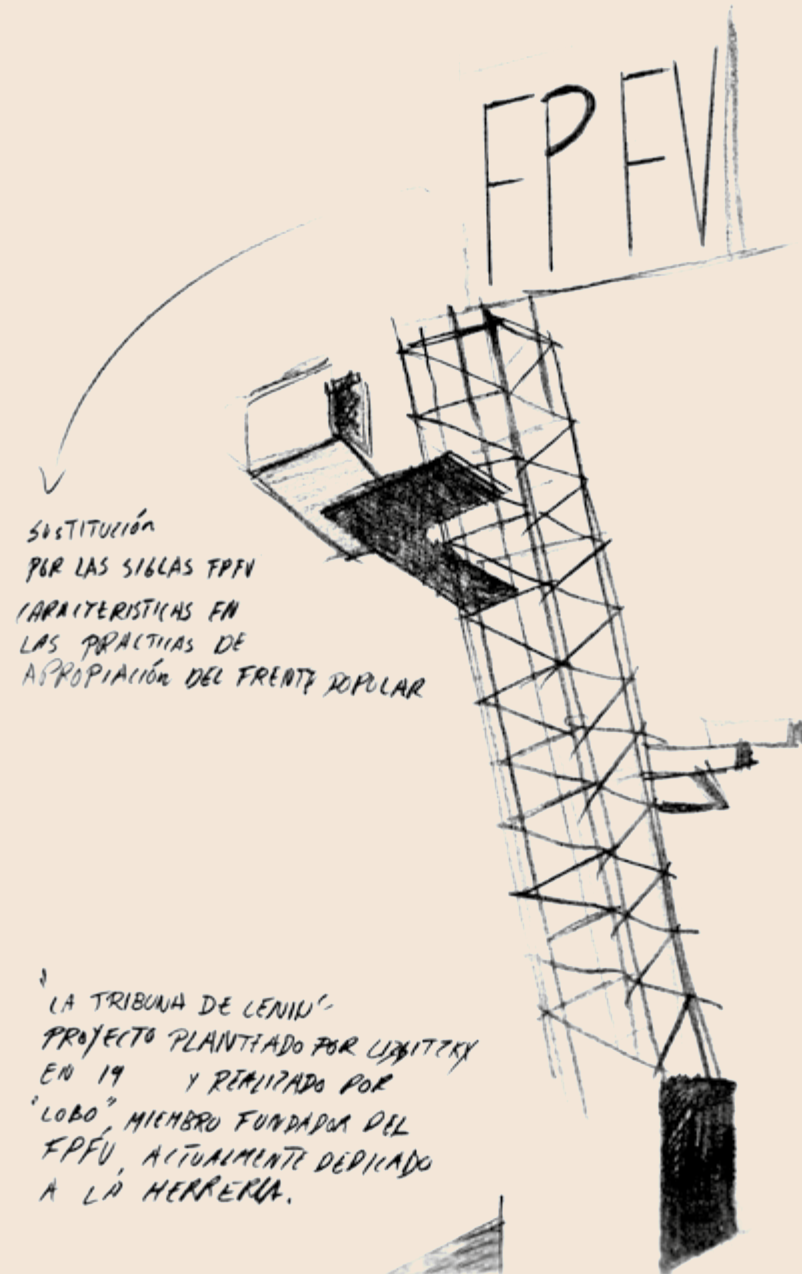 FPFV
SUSTITUCIÓN
POR LAS SIGLAS FPFV
CARACTERISTICAS EN
LAS PRACTICAS DE
APROPIACIÓN DEL FRENTE POPULAR
"LA TRIBUNA DE LENIN"
PROYECTO PLANTEADO POR LISSITZKY
EN 19 Y REALIZADO POR
"LOBO", MIEMBRO FUNDADOR DEL
FPFV, ACTUALMENTE DEDICADO
A LA HERRERIA.